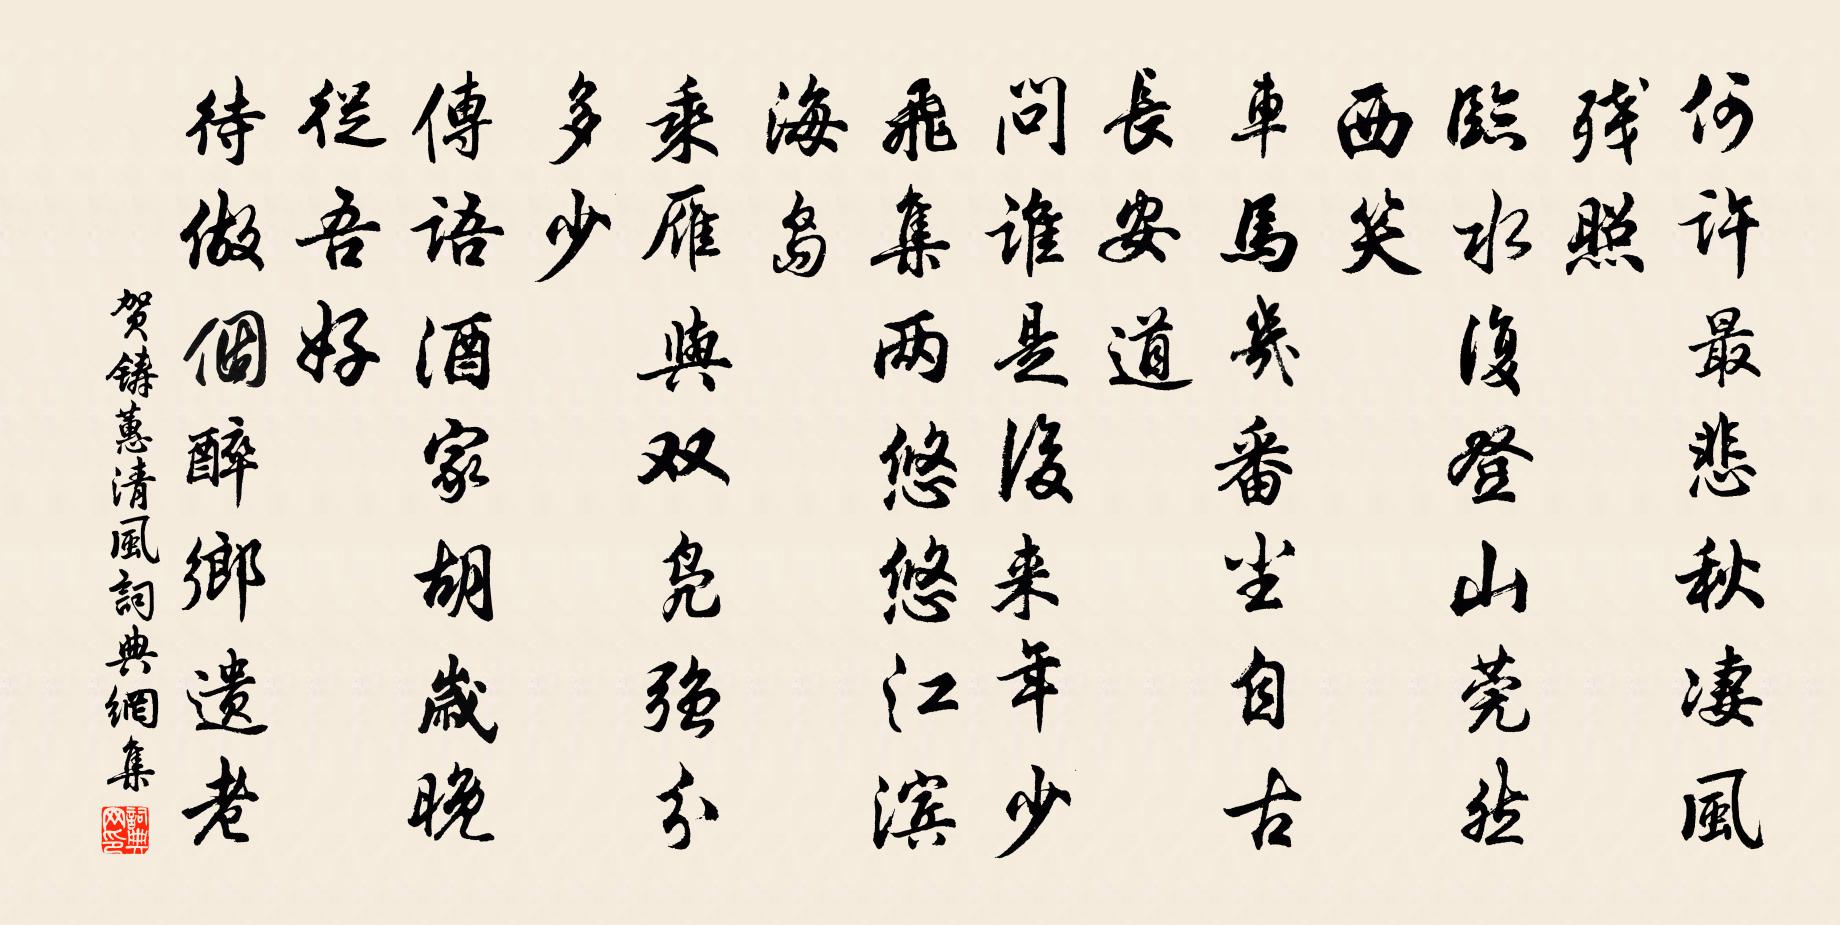 何許最悲秋凄風
残照
臨水復登山莞然
西笑
車馬幾番尘自古
長安道
問誰是後来年少
飛集两悠悠江滨
海岛
乘雁與双凫强分
多少
傳語酒家胡歲晚
從吾好
待做個醉鄉遗老
贺鑄蕙清風詞典網集
詞典网印